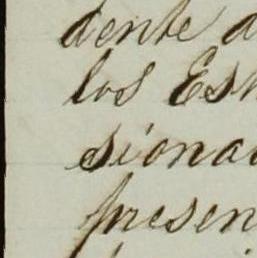 dente d
los Est
siona
presen